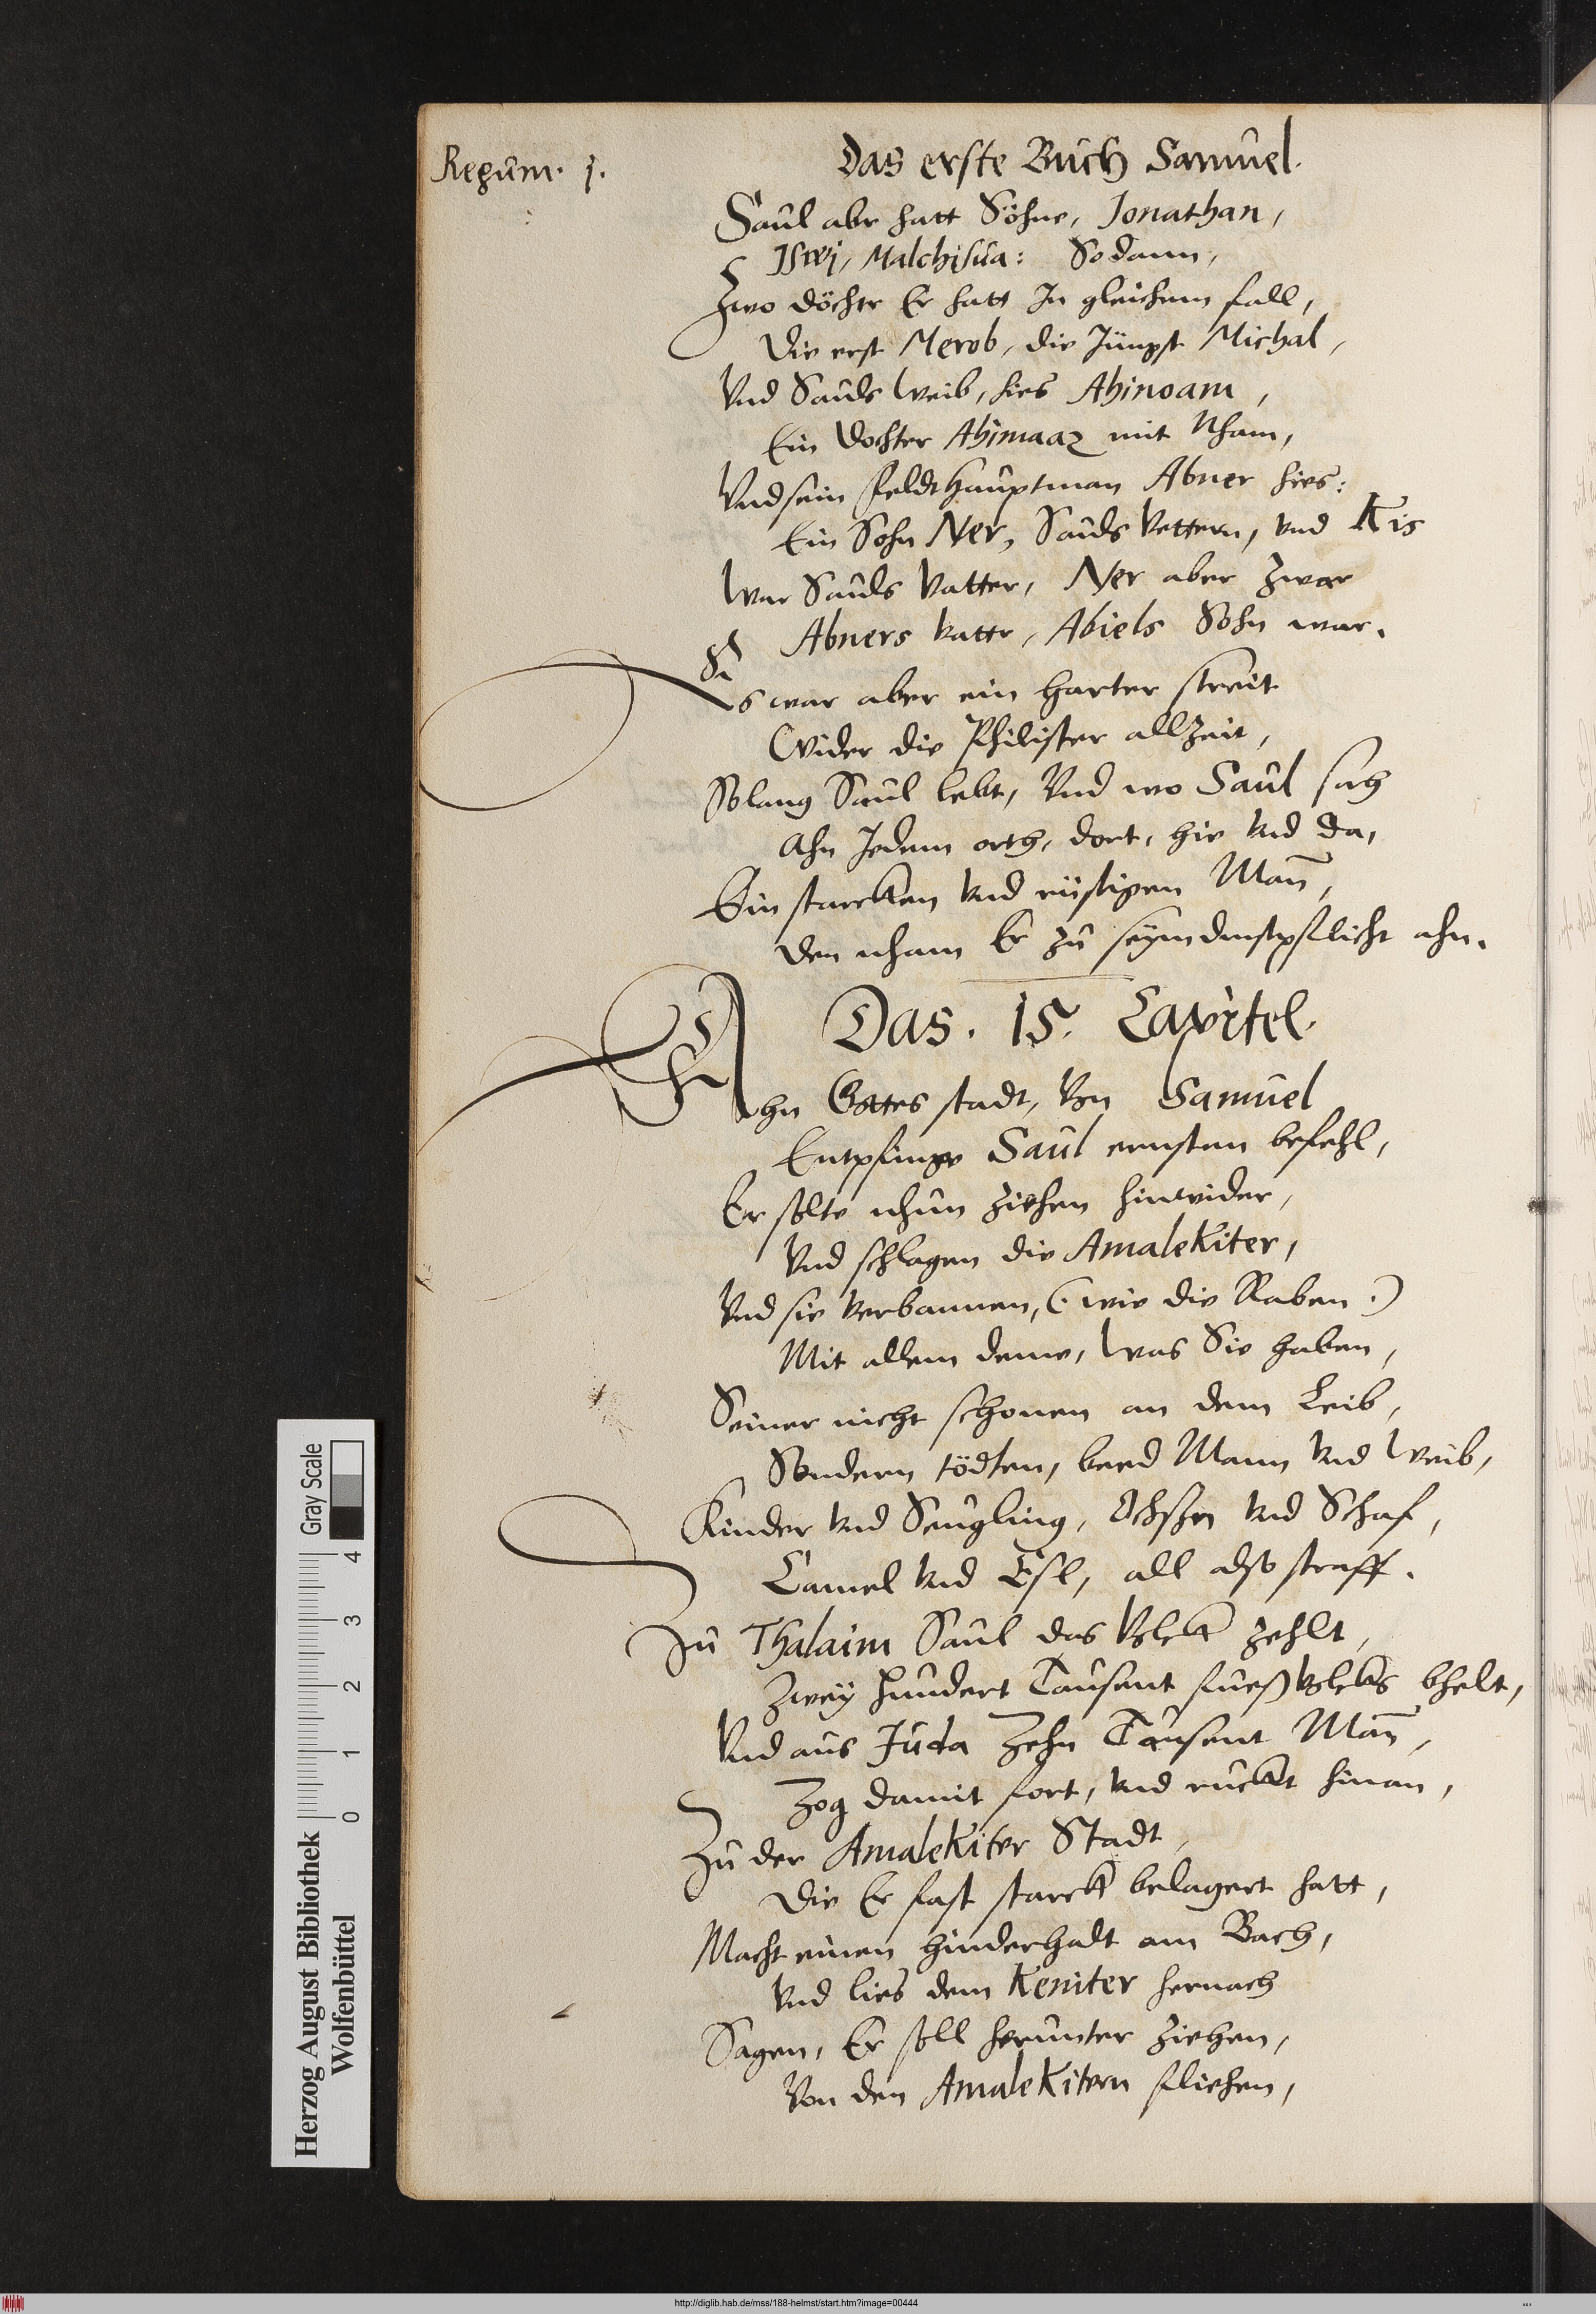 Regum. j.
Das erste Buch Samuel.
Saul abr hatt Söhne, Jonathan,
Jswj, Malchisua: Sodann,
Zwo döchtr Er hatt In gleichem fall,
Die erst Merob, die Jüngst Michal,
Vnd Sauls Weib, hies Ahinoam,
Ein Dochter Ahimaaz mit Nham,
Vnd sein Feldthauptman Abner hies:
Ein Sohn Ner, Sauls Vettern, vnd Kis
War Sauls Vatter, Ner aber zwar
Abners vattr, Abiels Sohn war.
Es war aber ein harter streit
Wider die Philister allzeit,
Solang Saul lebt, Vnd wo Saul sah
Ahn Jedem orth, dort, hie vnd da,
Ein starcken vnd rüstigen Mañ,
Den nham Er zu seym dinstpflicht ahn.
Das. 15. Capitel.
Ahn Gottes stadt, Von Samuel
Entpfinge Saul ernsten befehl,
Er solte nhun ziehen hinwider,
Vnd schlagen die Amalekiter,
Vnd sie verbannen, (. wie die Raben .)
Mit allem deme, Was Sie haben,
Seiner nicht schonen an dem Leib,
Sondern tödten, beed Mann vnd Weib,
Kinder vnd Seugling, Ochssen vnd Schaf,
Camel vnd Esl, all also straff.
Zu Thalaim Saul das Volck zehlt,
Zwey Hundert Tausent fuesvolcks bhelt,
Vnd aus Juda Zehn Tausent Mañ,
Zog damit fort, vnd ruckt hinan,
Zu der Amalekiter Stadt,
Die Er fast starck belagert hatt,
Macht einen hinderhalt am Bach,
Vnd lies dem Keniter hernach
Sagen, Er soll herunter ziehen,
Von den Amalekitern fliehen,
Herzog August Bibliothek
Wolfenbüttel
0 1 2 3 4
Gray Scale
http://diglib.hab.de/mss/188-helmst/start.htm?image=00444